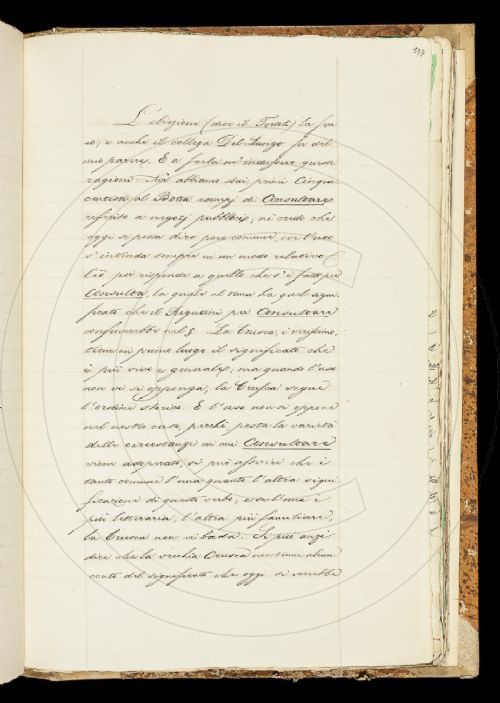 517
L'obiezione (dice il Tortoli) la fu
io; e anche il collega Del Lungo fu del
mio parere. E a farla m'indusse questa
ragione. Noi abbiamo dai primi Cinque
cento al Botta esempj di Consultare
riferito a negozj pubblici; nè credo che
oggi si possa dire pure comune, con l'uso
s'intenda sempre in un modo relativo
Ciò poi risponde a quello che s'è fatto per
Consulta, la quale al tema ha quel signi
ficato che il Rigutini per Consultare
metterebbe nel §. La Crusca, è verissimo,
tiene in primo luogo il significato che
è più vivo e generale; ma quando l'uso
non vi si opponga, la Crusca segue
l'ordine storico. E l'uso non si oppone
nel nostro caso, perchè posta la varietà
delle circostanze in cui Consultare
viene adoperato, si può asserire che è
tanto comune l'una quanto l'altra signi
ficazione di questo verbo; e se l'una è
più letteraria, l'altra più familiare,
la Crusca non vi bada. Si può anzi
dire che la vecchia Crusca non tenne alcun
conto del significato che oggi si vorrebbe